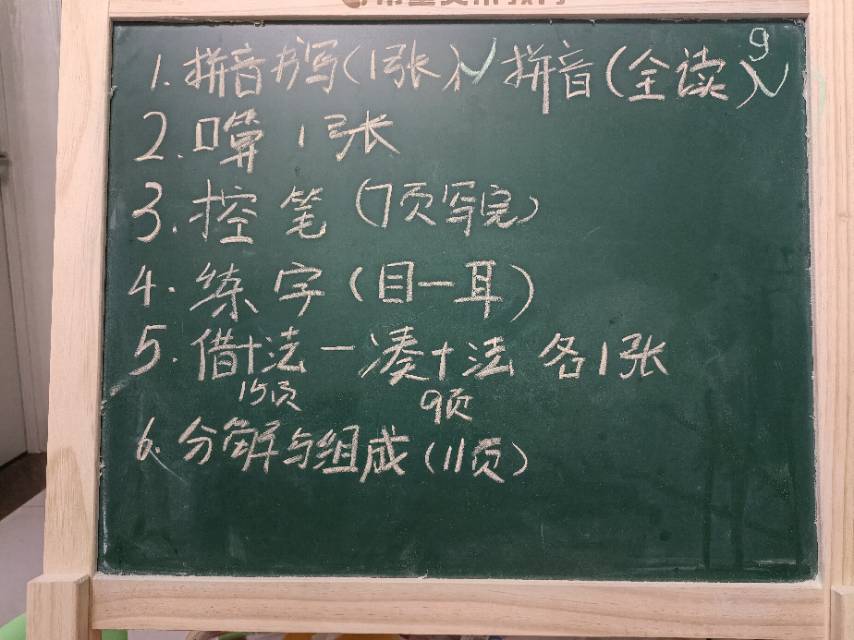 9
1. 拼音书写(1张)√ 拼音(全读)√
2. 口算 1张
3. 控笔(7页写完)
4. 练字(目一耳)
5. 借十法一凑十法 各1张
15页 9页
6. 分解与组成(11页)